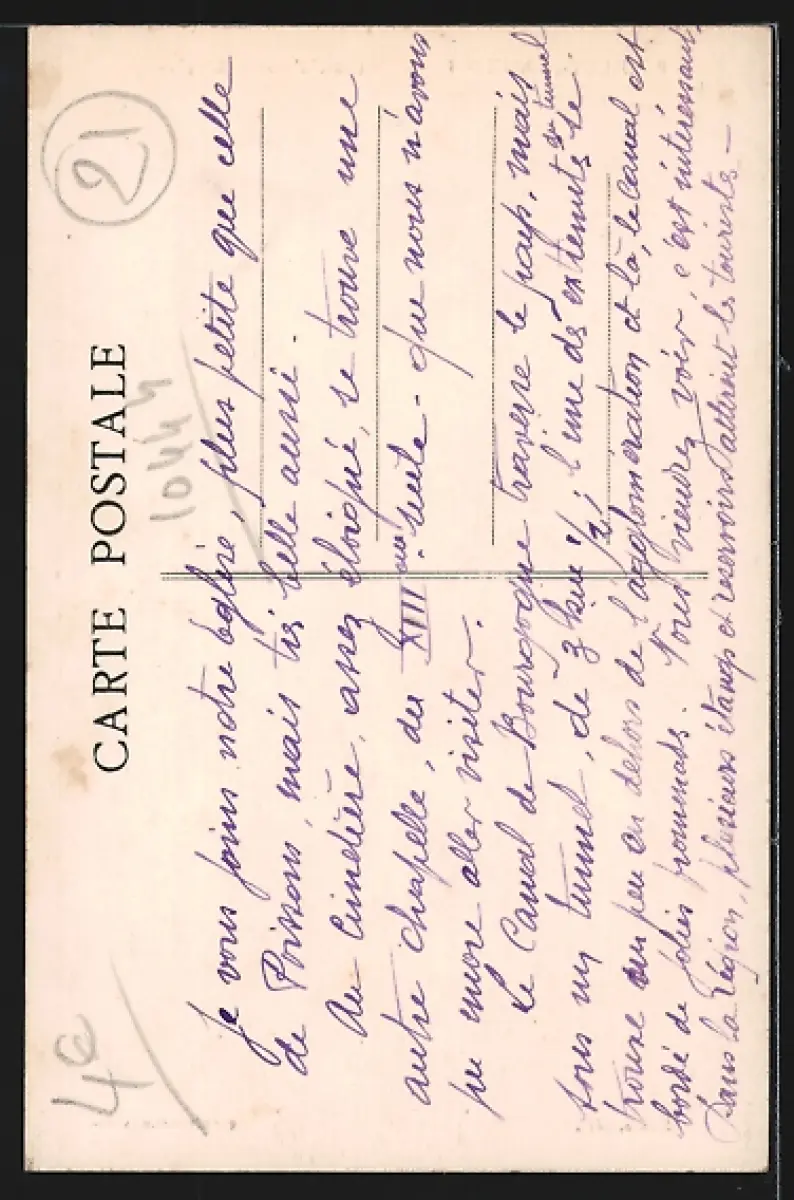 21
CARTE POSTALE
4€
Je vous joins notre église, plus petite que celle
de Poissons, mais très belle aussi.
Au Cimetière, assez éloigné, se trouve une
autre chapelle, du XIII siècle - que nous n'avons
pu encore aller visiter.
Le Canal de Bourgogne traverse le pays, mais
sous un tunnel, de 3 km 1/2; l'une des extremités du tunnel se
trouve un peu en dehors de l'agglomération et là, le canal est
bordé de jolies promenades. Vous viendrez voir, c'est intéressant,
Dans la région, plusieurs étangs et réservoirs attirent les touristes -